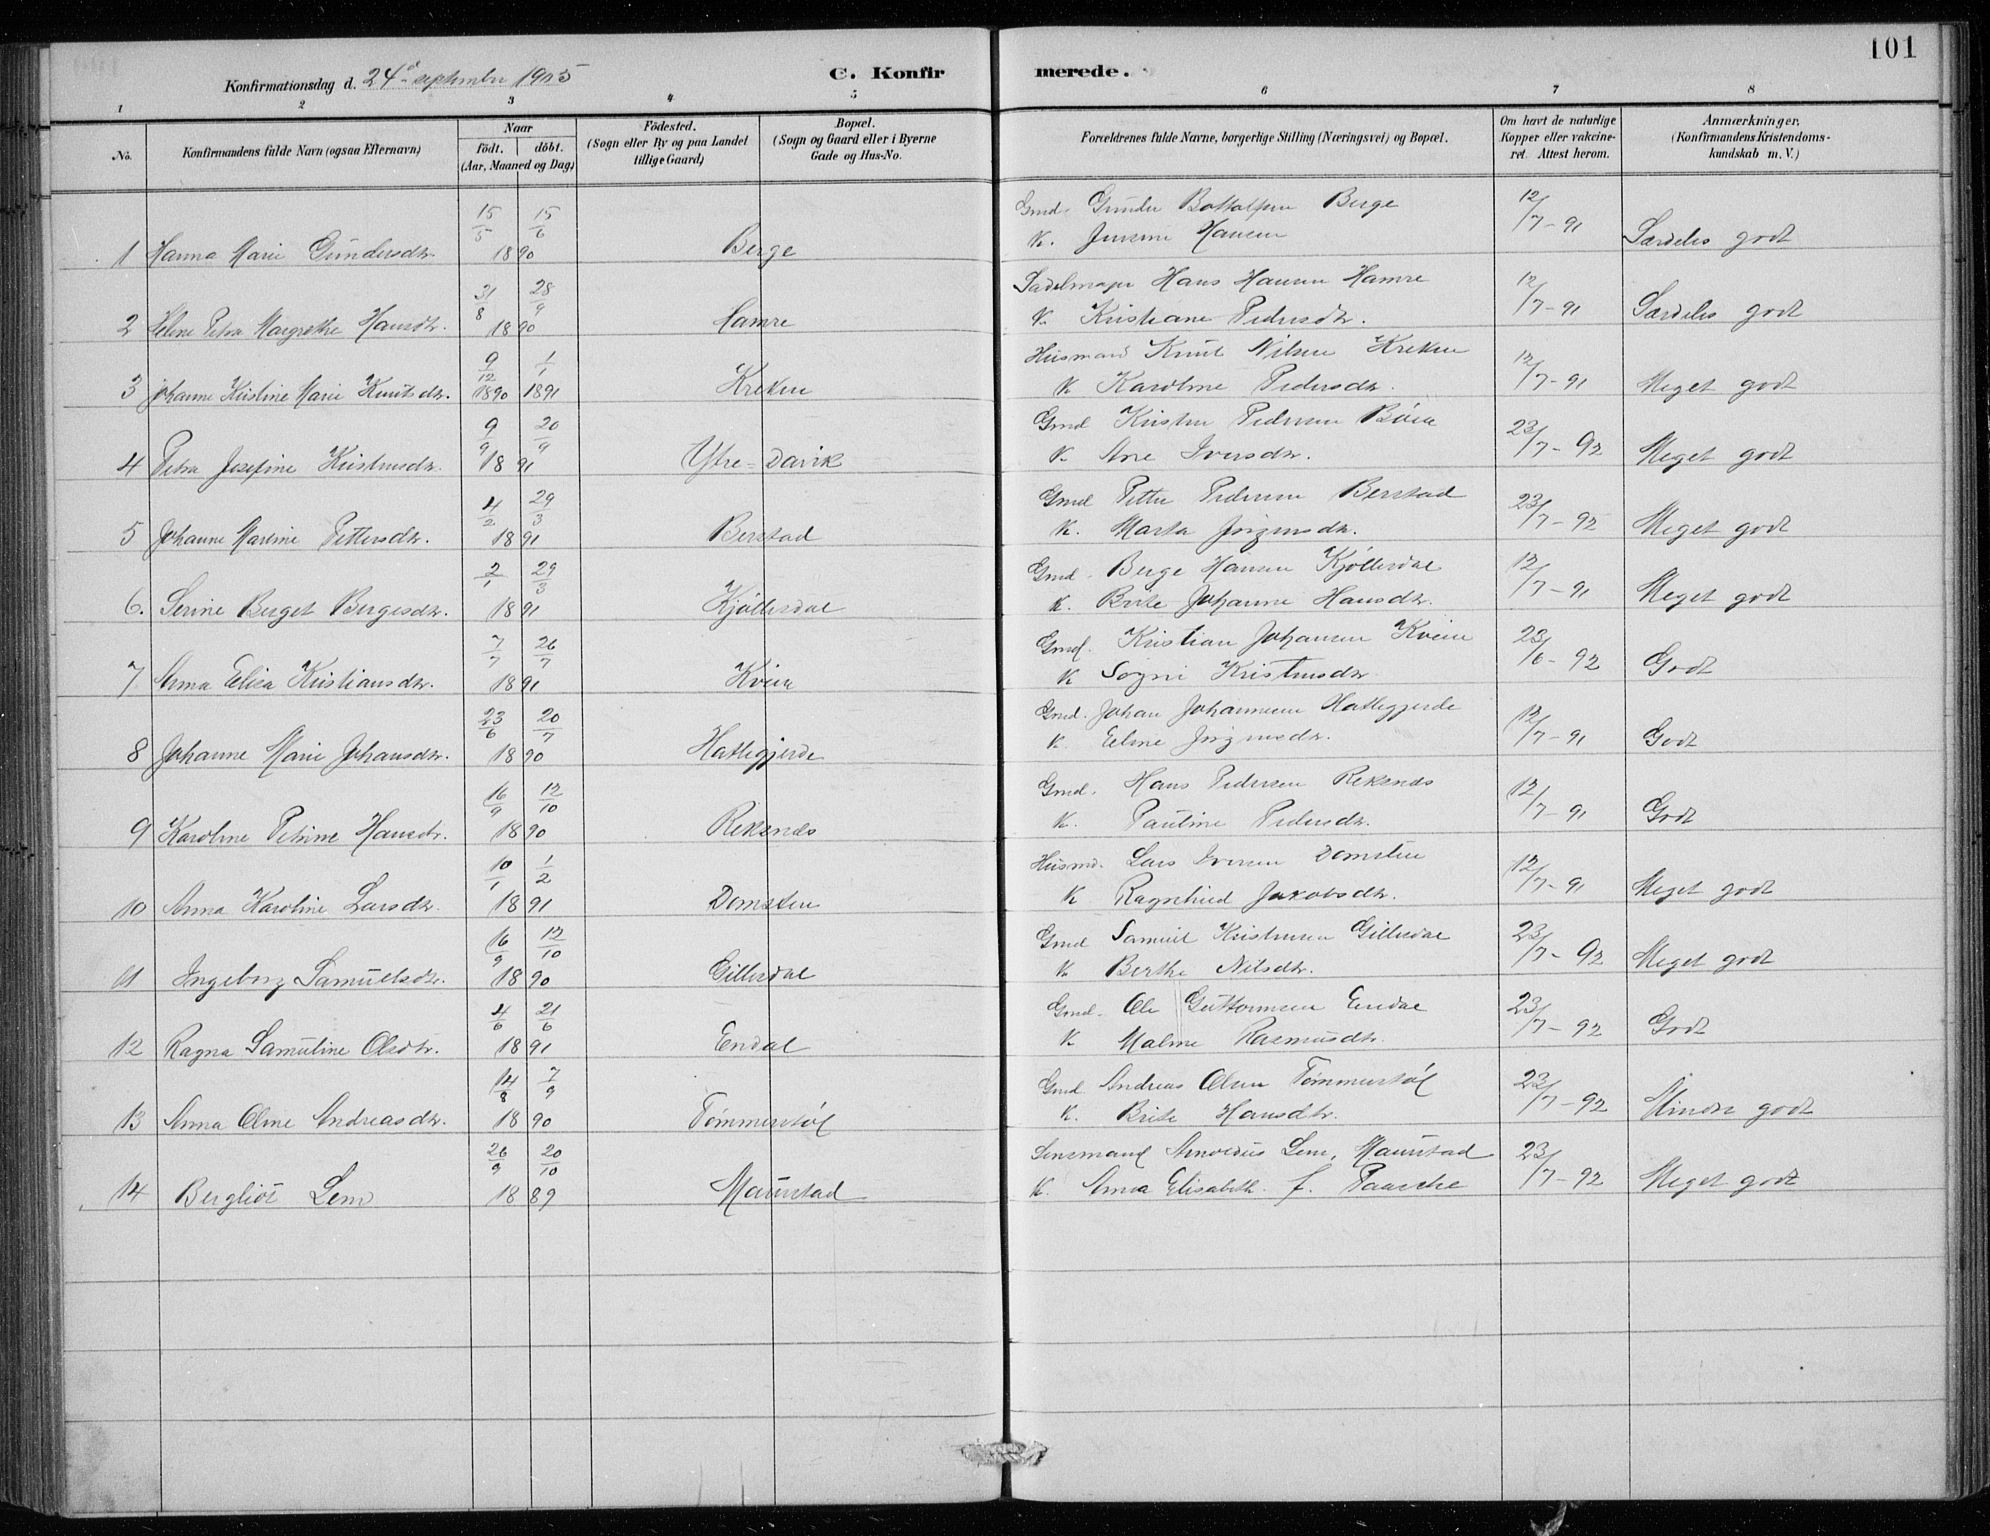 101
Konfirmationsdag d. 24de september 1905
C. Konfirmerede.
1 2 3 4 5 6 7 8
No.
Konfirmandens fulde Navn (ogsaa Efternavn)
Naar
födt. döbt.
(Aar, Maaned og Dag)
Födested.
(Sogn eller By og paa Landet
tillige Gaard)
Bopæl.
(Sogn og Gaard eller i Byerne
Gade og Hus-No.
Forældrenes fulde Navne, borgerlige Stilling (Næringsvei) og Bopæl.
Om havt de naturlige
Kopper eller vakcine-
ret. Attest herom.
Anmærkninger.
(Konfirmandens Kristendoms-
kundskab m. V.)
15/5 15/6 Gmd. Gunder Bottolfsen Berge 12/7-91
1 Hanna Marie Gundersdtr. 1890 Berge K. Jensine Hansen Særdeles godt
31/8 28/9 Sadelmager Hans Hansen Hamre 12/7-91
2 Petra Margrethe Hansdtr. 1890 Hamre K. Kristiane Pedersdtr. Særdeles godt
9/12 1/1 Husmand Knut Nilsen Kreken 12/7-91
3 Johanne Kristine Marie Knutsdtr. 1890 1891 Kreken K Karoline Pedersdtr. Meget godt
9/9 20/9 Gmd Kristen Pedersen 23/7-92
4 Petra Josefine Kristensdtr. 1891 Ytre-Davik K. Ane Iversdtr. Meget godt
4/2 29/3 Gmd Petter Pedersen Berstad 23/7-92
5 Johanne Martine Pettersdtr. 1891 Berstad K. Marta Jørgensdtr. Meget godt
2/1 29/3 Gmd. Berge Hansen Kjøllesdal 12/7-91
6. Serine Berget Bergesdtr. 1891 Kjøllesdal K. Brite Johanne Hansdtr. Meget godt
7/7 26/7 Gmd. Kristian Johansen Kvien 23/6-92
7 Anna Elisa Kristiansdtr. 1891 Kvien K Sogni Kristensdtr Godt
23/6 20/7 Gmd. Johan Johannesen Hatlegjerde 12/7-91
8 Johanne Marie Johansdtr. 1890 Hatlegjerde K. Eline Jørgensdtr. Godt
16/9 12/10 Gmd. Hans Pedersen Reksnes 12/7-91
9 Karoline Petrine Hansdtr. 1890 Reksnes K. Pauline Pedersdtr. Godt
10/1 1/2 Husmd. Lars Iversen Domsten 12/7-91
10 Anna Karoline Larsdtr. 1891 Domsten K Ragnhild Jakobsdtr. Meget godt
16/9 12/10 Gmd Samuel Kristensen Gillesdal 23/7-92
11 Ingeborg Samuelsdtr. 1890 Gillesdal K Berthe Nilsdtr. Meget godt
4/6 21/6 Gmd. Ole Guttormsen Endal 23/7-92
12 Ragna Samuline Olsdtr. 1891 Endal K. Maline Rasmusdtr. Godt
14/8 7/9 Gmd. Andreas Olsen Tømmerstøl 23/7-92
13 Anna Oline Andreasdtr. 1890 Tømmerstøl K. Brite Hansdtr. Mindre godt
26/9 20/10 Lensmand Arnoldus Lem, Maurstad 23/7-92
14 Bergliot Lem 1889 Maurstad K. Anna Elisabeth f. Paasche Meget godt